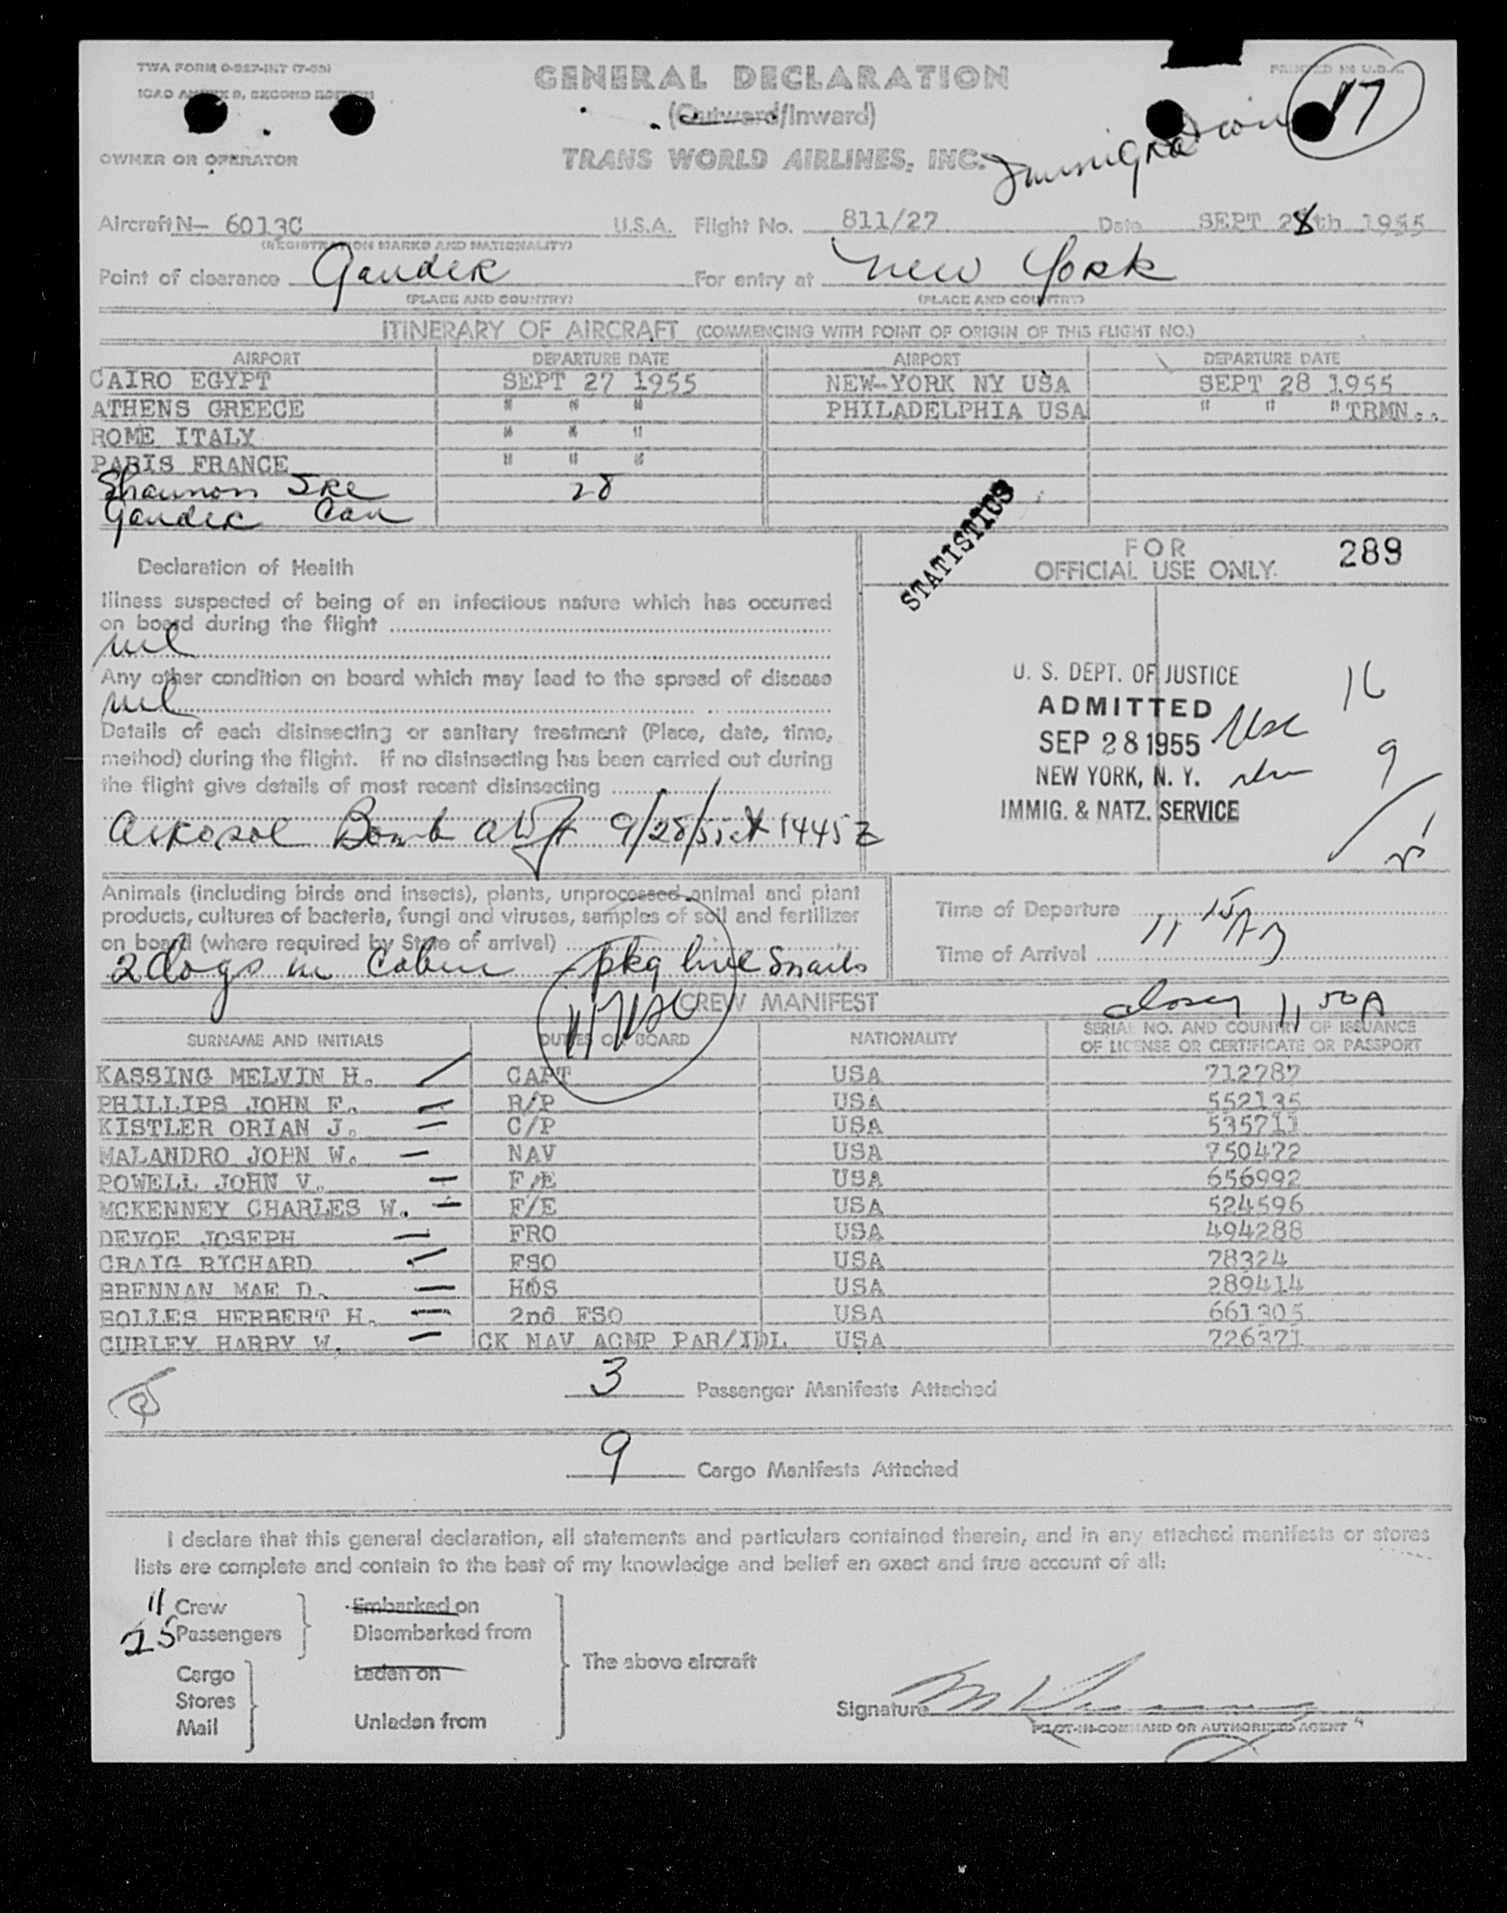 TWA FORM O-927-INT (7-55)
PRINTED IN U.S.A.
ICAO ANNEX 9, SECOND EDITION
GENERAL DECLARATION
17
(Outward/Inward)
Immigration
OWNER OR OPERATOR
TRANS WORLD AIRLINES, INC.
Aircraft N- 6013C U.S.A. Flight No. 811/27 Date SEPT 28th 1955
(REGISTRATION MARKS AND NATIONALITY)
Point of clearance Gander For entry at New York
(PLACE AND COUNTRY) (PLACE AND COUNTRY)
ITINERARY OF AIRCRAFT (COMMENCING WITH POINT OF ORIGIN OF THIS FLIGHT NO.)
AIRPORT DEPARTURE DATE AIRPORT DEPARTURE DATE
CAIRO EGYPT SEPT 27 1955 NEW-YORK NY USA SEPT 28 1955
ATHENS GREECE " " " PHILADELPHIA USA " " " TRMN..
ROME ITALY " " "
PARIS FRANCE " " "
Shannon Ire 28
Gander Can
STATISTICS
FOR
OFFICIAL USE ONLY.
289
Declaration of Health
Illness suspected of being of an infectious nature which has occurred
on board during the flight
nil
Any other condition on board which may lead to the spread of disease
nil
Details of each disinsecting or sanitary treatment (Place, date, time,
method) during the flight. If no disinsecting has been carried out during
the flight give details of most recent disinsecting
Aerosol Bomb 9/28/55 at 1445Z
U. S. DEPT. OF JUSTICE
ADMITTED
SEP 28 1955
NEW YORK, N. Y.
IMMIG. & NATZ. SERVICE
16
9
Animals (including birds and insects), plants, unprocessed animal and plant
products, cultures of bacteria, fungi and viruses, samples of soil and fertilizer
on board (where required by State of arrival)
2 dogs in Cabin pkg live Snails
Time of Departure
Time of Arrival 11 15 A
CREW MANIFEST
11 50 A
SURNAME AND INITIALS DUTIES ON BOARD NATIONALITY SERIAL NO. AND COUNTRY OF ISSUANCE
OF LICENSE OR CERTIFICATE OR PASSPORT
KASSING MELVIN H. CAPT USA 712787
PHILLIPS JOHN F. R/P USA 552135
KISTLER ORIAN J. C/P USA 535711
MALANDRO JOHN W. NAV USA 750472
POWELL JOHN V. F/E USA 656992
MCKENNEY CHARLES W. F/E USA 524596
DEVOE JOSEPH FRO USA 494288
CRAIG RICHARD FSO USA 78324
BRENNAN MAE D. HOS USA 289414
BOLLES HERBERT H. 2nd FSO USA 661305
CURLEY HARRY W. CK NAV ACMP PAR/IDL USA 726371
3 Passenger Manifests Attached
9 Cargo Manifests Attached
I declare that this general declaration, all statements and particulars contained therein, and in any attached manifests or stores
lists are complete and contain to the best of my knowledge and belief an exact and true account of all:
11 Crew Embarked on
25 Passengers Disembarked from
The above aircraft
Cargo Laden on
Stores
Mail Unladen from
Signature
PILOT-IN-COMMAND OR AUTHORIZED AGENT